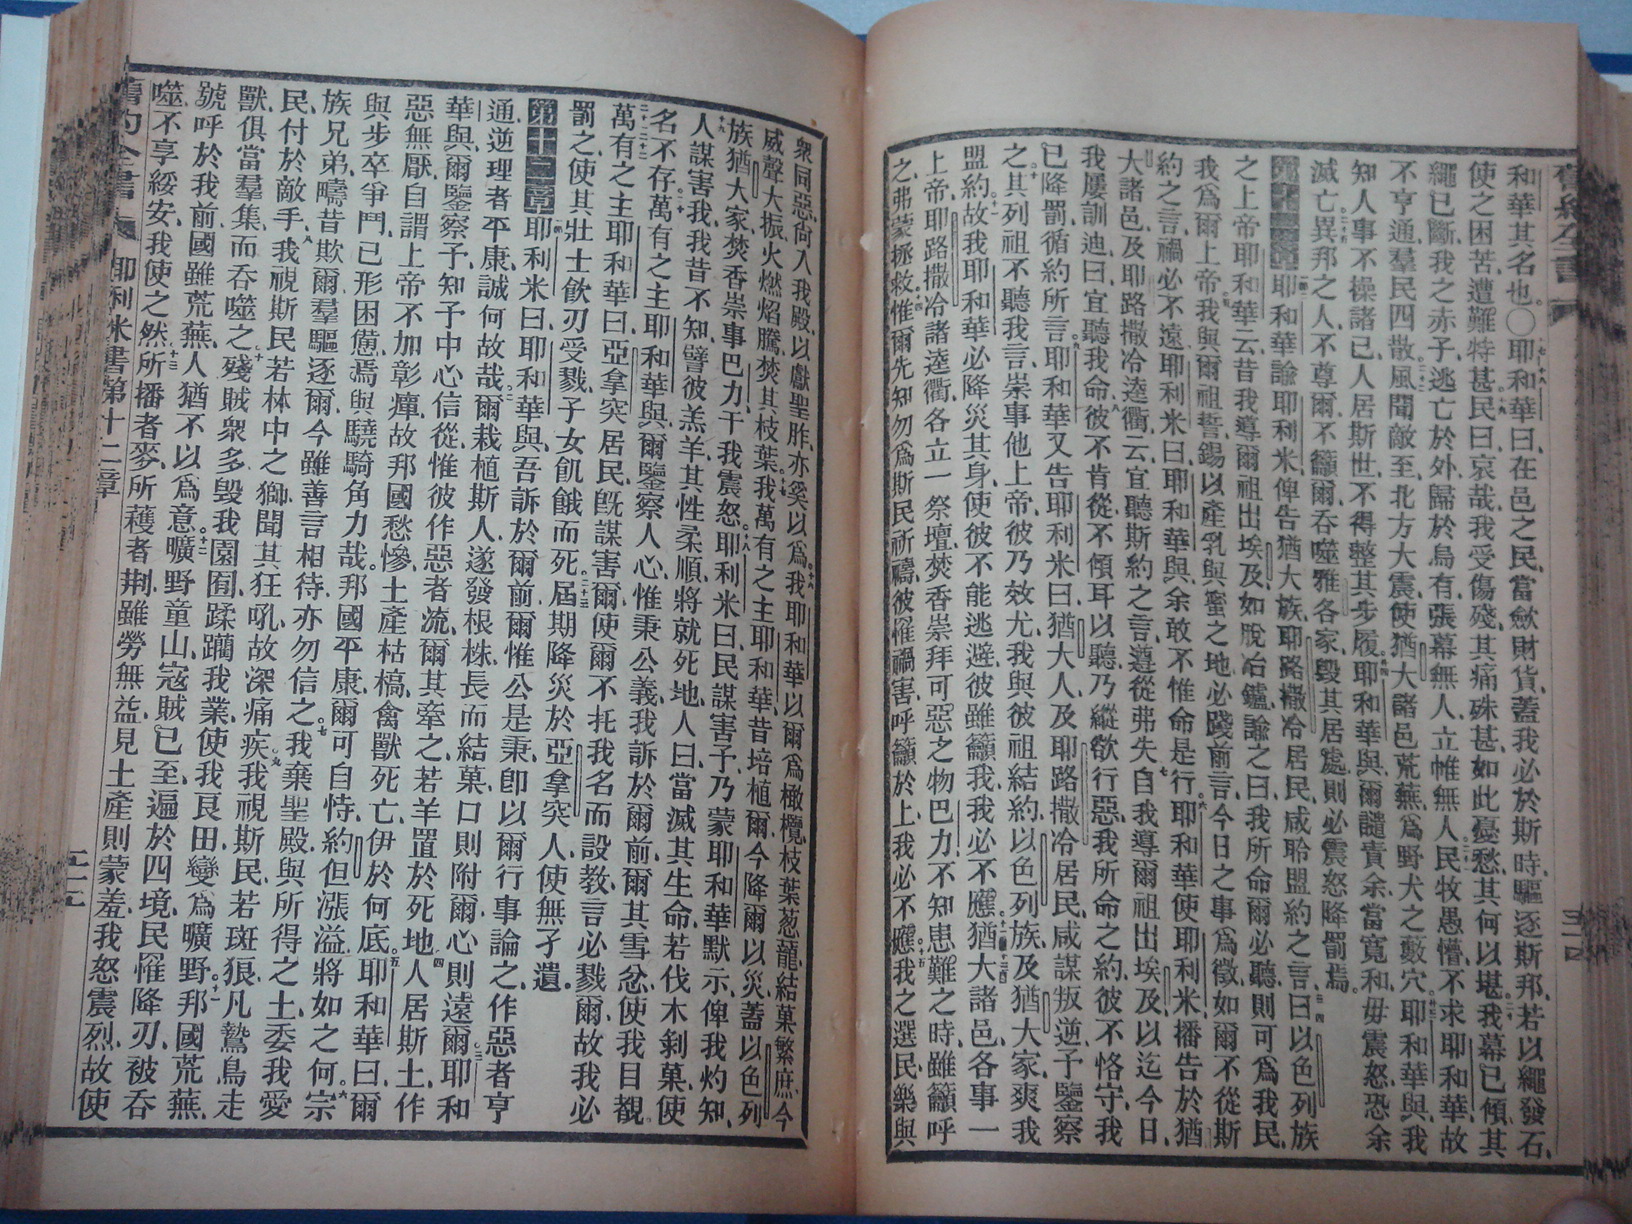 和華其名也。〇耶和華曰、在邑之民、當斂財貨、蓋我必於斯時、驅逐斯邦、若以繩發石、
使之困苦、遭難特甚、民曰、哀哉、我受傷殘、其痛殊甚、如此憂愁、其何以堪、我幕已傾、其
繩已斷、我之赤子、逃亡於外、歸於烏有、張幕無人、立帷無人、民牧愚懵、不求耶和華、故
不亨通、羣民四散、風聞敵至、北方大震、使猶大諸邑荒蕪、爲野犬之藪穴、耶和華與、我
知人事不操諸己、人居斯世、不得整其步履、耶和華與、爾譴責余、當寬和、毋震怒、恐余
滅亡、異邦之人、不尊爾、不籲爾、吞噬雅各家、毀其居處、則必震怒降罰焉。
第十一章 耶和華諭耶利米、俾告猶大族、耶路撒冷居民、咸聆盟約之言、曰、以色列族
之上帝耶和華云、昔我導爾祖出埃及、如脫冶鑪、諭之曰、我所命爾必聽、則可爲我民、
我爲爾上帝、我與爾祖誓、錫以產乳與蜜之地、必踐前言、今日之事爲徵、如爾不從斯
約之言、禍必不遠、耶利米曰、耶和華與、余敢不惟命是行、耶和華使耶利米播告於猶
大諸邑、及耶路撒冷逵衢、云、宜聽斯約之言、遵從弗失、自我導爾祖出埃及、以迄今日、
我屢訓迪曰、宜聽我命、彼不肯從、不傾耳以聽、乃縱欲行惡、我所命之約、彼不恪守、我
已降罰、循約所言、耶和華又告耶利米曰、猶大人及耶路撒冷居民、咸謀叛逆、予鑒察
之、其列祖不聽我言、崇事他上帝、彼乃效尤、我與彼祖結約、以色列族、及猶大家、爽我
盟約、故我耶和華必降災其身、使彼不能逃避、彼雖籲我、我必不應、猶大諸邑、各事一
上帝、耶路撒冷諸逵衢、各立一祭壇、焚香崇拜可惡之物巴力、不知患難之時、雖籲呼
之、弗蒙拯救、惟爾先知、勿爲斯民祈禱、彼罹禍害、呼籲於上、我必不應、我之選民、樂與
衆同惡、尙入我殿、以獻聖胙、亦奚以爲、我耶和華以爾爲橄欖、枝葉葱蘢、結菓繁庶、今
威聲大振、火燃焰騰、焚其枝葉、我萬有之主耶和華、昔培植爾、今降爾以災、蓋以色列
族、猶大家、焚香崇事巴力、干我震怒、耶利米曰、民謀害予、乃蒙耶和華默示、俾我灼知、
人謀害我、我昔不知、譬彼羔羊、其性柔順、將就死地、人曰、當滅其生命、若伐木剝菓、使
名不存、萬有之主耶和華與、爾鑒察人心、惟秉公義、我訴於爾前、爾其雪忿、使我目覩、
萬有之主耶和華曰、亞拿突居民、旣謀害爾、使爾不托我名而設教、言必戮爾、故我必
罰之、使其壯士飲刃受戮、子女飢餓而死、屆期降災於亞拿突人、使無孑遺。
第十二章 耶利米曰、耶和華與、吾訴於爾前、爾惟公是秉、卽以爾行事論之、作惡者亨
通、逆理者平康、誠何故哉、爾栽植斯人、遂發根株、長而結菓、口則附爾、心則遠爾、耶和
華與、爾鑒察予、知予中心信從、惟彼作惡者流、爾其牽之、若羊置於死地、人居斯土、作
惡無厭、自謂上帝不加彰癉、故邦國愁慘、土產枯槁、禽獸死亡、伊於何底、耶和華曰、爾
與步卒爭鬥、已形困憊、焉與驍騎角力哉。邦國平康、爾可自恃、約但漲溢、將如之何。宗
族兄弟、疇昔欺爾、羣驅逐爾、今雖善言相待、亦勿信之。我棄聖殿、與所得之土、委我愛
民、付於敵手、我視斯民、若林中之獅、聞其狂吼、故深痛疾、我視斯民、若斑狼、凡鷙鳥走
獸、俱當羣集而吞噬之、殘賊衆多、毀我園囿、蹂躪我業、使我良田、變爲曠野、邦國荒蕪、
號呼於我前、國雖荒蕪、人猶不以爲意、曠野童山、寇賊已至、遍於四境、民罹降刃、被吞
噬、不享綏安、我使之然、所播者麥、所穫者荆、雖勞無益、見土產則蒙羞、我怒震烈、故使
舊約全書 耶利米書第十二章